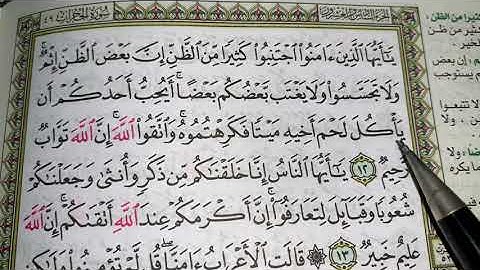 الجزء السادس والعشرون سورة الحجرات ٤٩
يَٰٓأَيُّهَا ٱلَّذِينَ ءَامَنُوا۟ ٱجْتَنِبُوا۟ كَثِيرًا مِّنَ ٱلظَّنِّ إِنَّ بَعْضَ ٱلظَّنِّ إِثْمٌ
وَلَا تَجَسَّسُوا۟ وَلَا يَغْتَب بَّعْضُكُم بَعْضًا ۚ أَيُحِبُّ أَحَدُكُمْ أَن
يَأْكُلَ لَحْمَ أَخِيهِ مَيْتًا فَكَرِهْتُمُوهُ ۚ وَٱتَّقُوا۟ ٱللَّهَ ۚ إِنَّ ٱللَّهَ تَوَّابٌ
رَّحِيمٌ ١٢ يَٰٓأَيُّهَا ٱلنَّاسُ إِنَّا خَلَقْنَٰكُم مِّن ذَكَرٍ وَأُنثَىٰ وَجَعَلْنَٰكُمْ
شُعُوبًا وَقَبَآئِلَ لِتَعَارَفُوٓا۟ ۚ إِنَّ أَكْرَمَكُمْ عِندَ ٱللَّهِ أَتْقَىٰكُمْ ۚ إِنَّ ٱللَّهَ
عَلِيمٌ خَبِيرٌ ١٣ قَالَتِ ٱلْأَعْرَابُ ءَامَنَّا ۖ قُل لَّمْ تُؤْمِنُوا۟ وَلَٰكِن
كثيرا من الظن